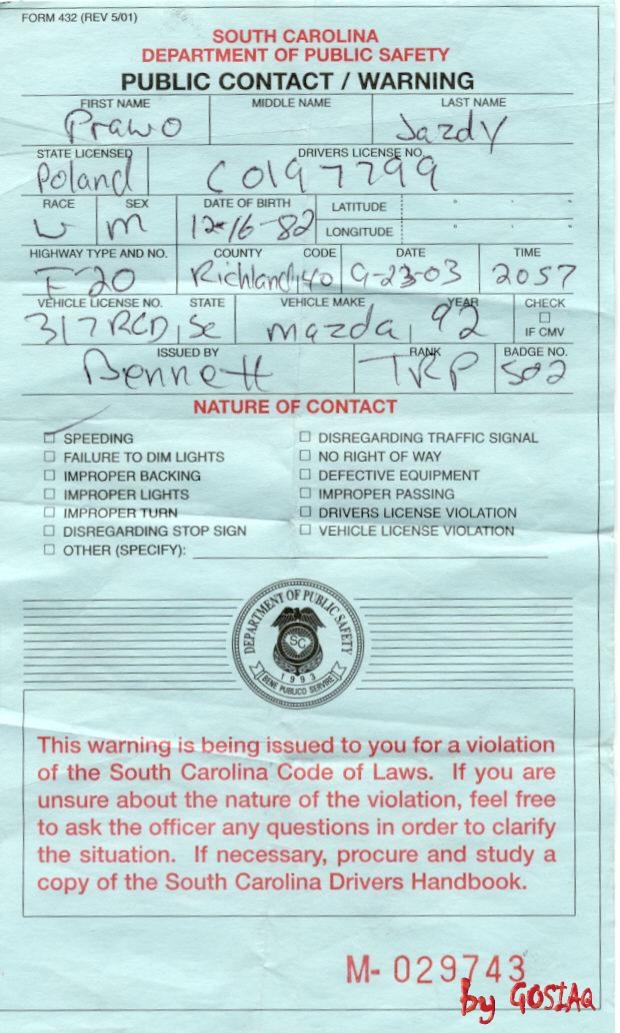 FORM 432 (REV 5/01)
SOUTH CAROLINA
DEPARTMENT OF PUBLIC SAFETY
PUBLIC CONTACT / WARNING
FIRST NAME MIDDLE NAME LAST NAME
Prawo Jazdy
STATE LICENSED DRIVERS LICENSE NO.
Poland C0197799
RACE SEX DATE OF BIRTH LATITUDE
W M 12-16-82 LONGITUDE
HIGHWAY TYPE AND NO. COUNTY CODE DATE TIME
I-20 Richland, 40 9-23-03 2057
VEHICLE LICENSE NO. STATE VEHICLE MAKE YEAR CHECK
317 RCD, SC mazda, 92 IF CMV
ISSUED BY RANK BADGE NO.
Bennett TRP 502
NATURE OF CONTACT
SPEEDING DISREGARDING TRAFFIC SIGNAL
FAILURE TO DIM LIGHTS NO RIGHT OF WAY
IMPROPER BACKING DEFECTIVE EQUIPMENT
IMPROPER LIGHTS IMPROPER PASSING
IMPROPER TURN DRIVERS LICENSE VIOLATION
DISREGARDING STOP SIGN VEHICLE LICENSE VIOLATION
OTHER (SPECIFY):
DEPARTMENT OF PUBLIC SAFETY
SC
1993
BENE PUBLICO SERVIRE
This warning is being issued to you for a violation
of the South Carolina Code of Laws. If you are
unsure about the nature of the violation, feel free
to ask the officer any questions in order to clarify
the situation. If necessary, procure and study a
copy of the South Carolina Drivers Handbook.
M- 029743
by GOSIAQ